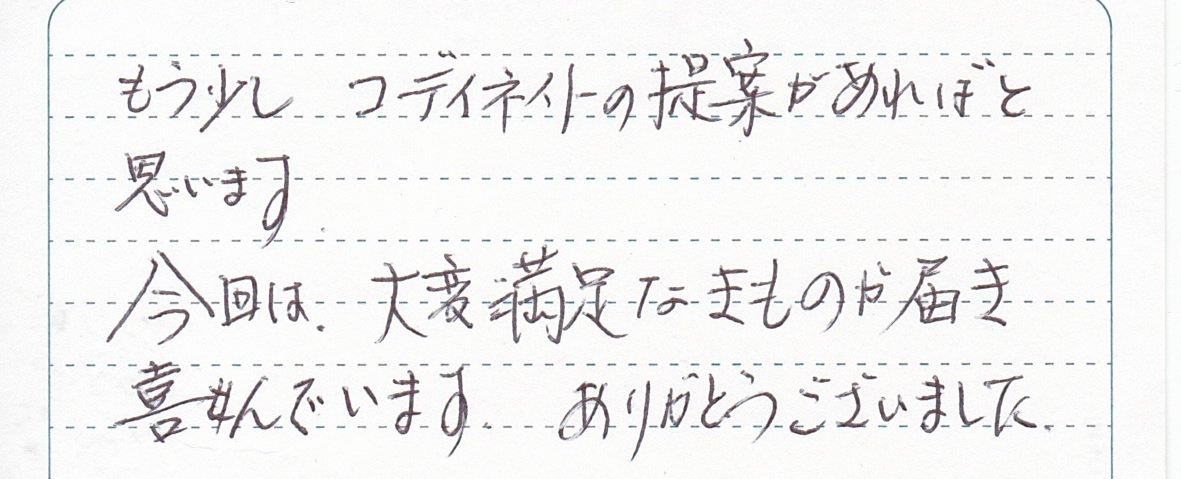 もう少し コーディネイトの提案があればと
思います
今回は、大変満足なきものが届き
喜んでいます。 ありがとうございました。